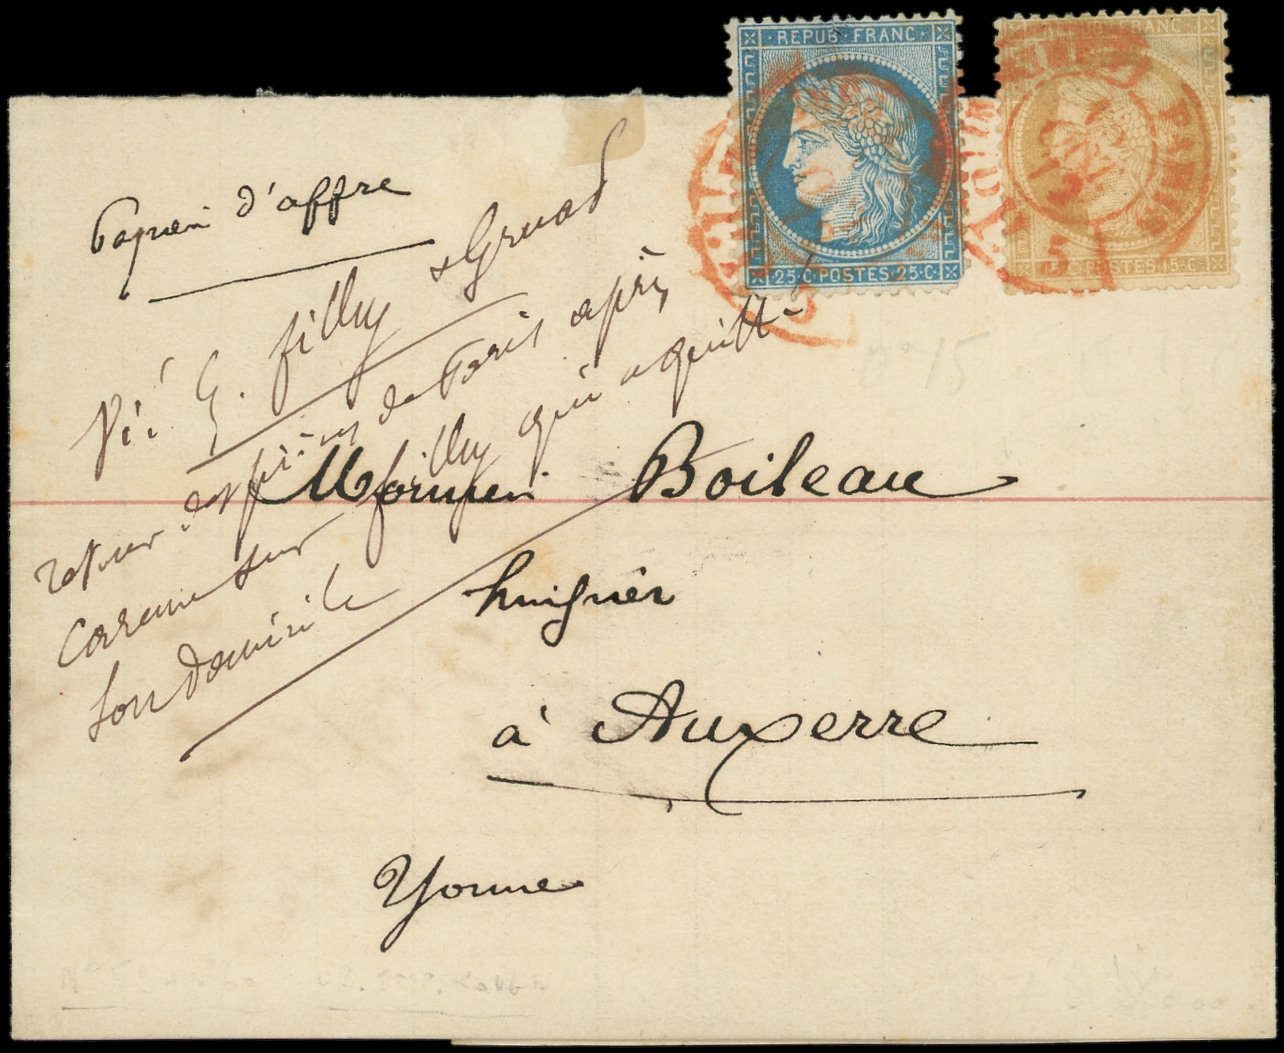 REPUB FRANC
25·C·POSTES·25·C
REPUB FRANC
POSTES·15·C
PARIS
5
Papiers d'affre
Vié G. filly & Gruad
retour des pièces de Paris après
sur filly qui a quitté
son domicile
Monsieur Boileau
huissier
à Auxerre
Yonne